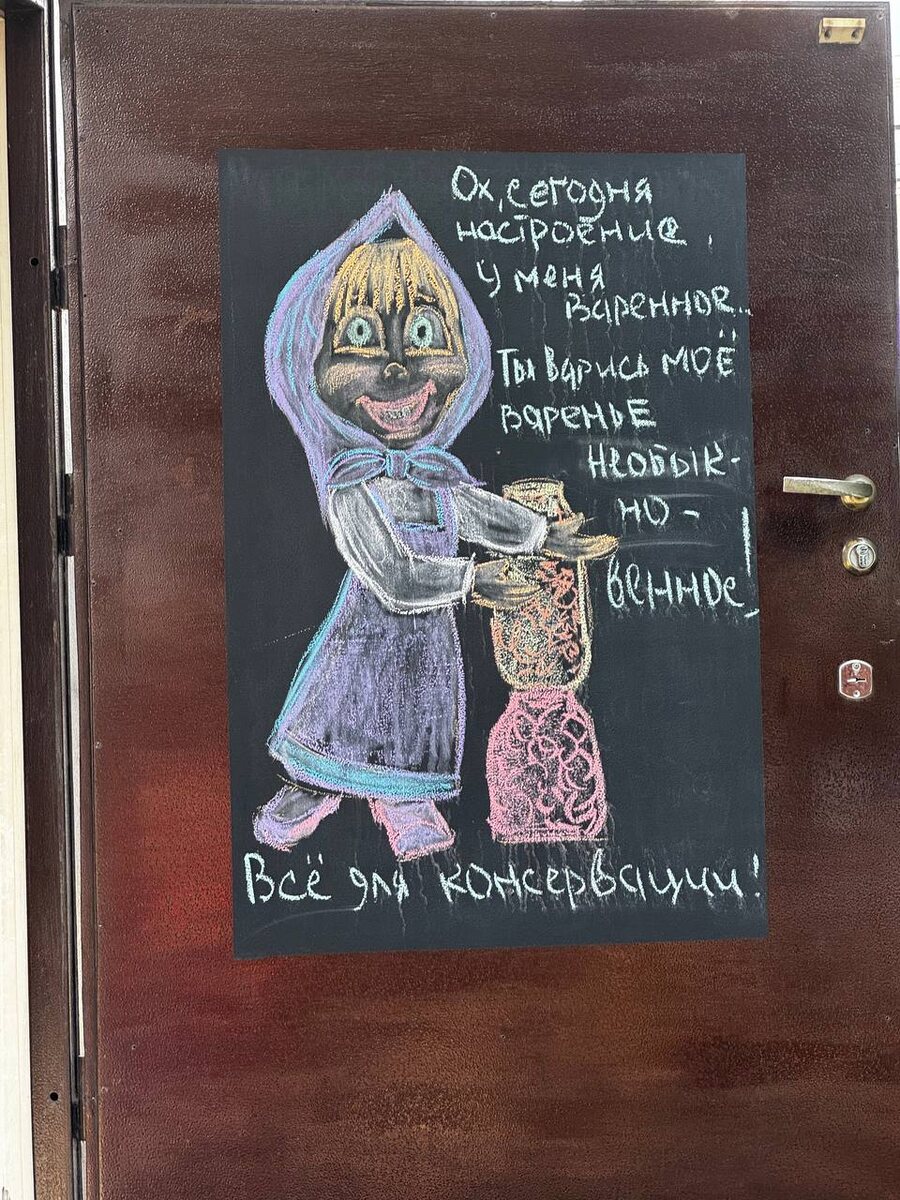 Ох, сегодня
настроение,
у меня
варенное..
Ты варись моё
варенье
необык-
но-
венное!
Всё для консервации!